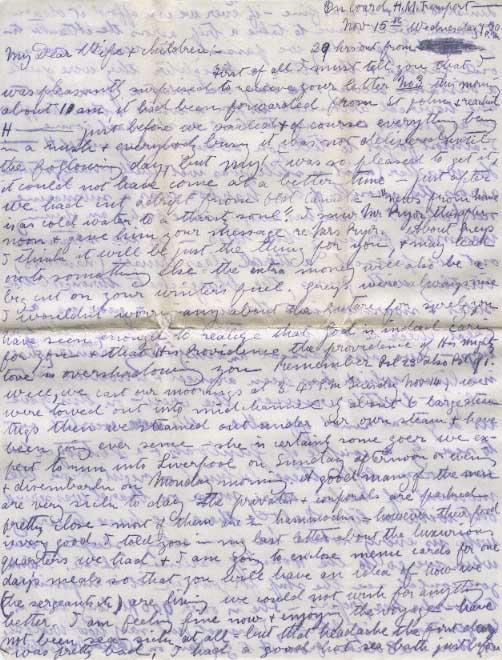 On board H.M. Transport
Nov 15th Wednesday 7.30
P.M.
My Dear Wife & children: 29 hrs out from
First of all I must tell you that I
was pleasantly surprised to receive your letter No 3 this morning
about 10 am it had been forwarded from St Johns & reached
H just before we sailed & of course everything being
in a rush & everybody busy it was not delivered until
the following day, but my! I was so pleased to get it
it could not have come at a better time - just after
we had cut adrift from old Canada - "news from home
is as cold water to a thirsty soul". I saw Mr Pryor this after-
noon & gave him your message re Mrs Pryor. About
I think it will be just the thing for you & may lead
onto something else the extra money will also be a
big cut on your winters fuel.
I wouldn't worry any about the future for surely you
have seen enough to realize that God is indeed caring
for you & that His Providence, the providence of His mighty
love is overshadowing you Remember Psl 23 also Psl 91.
Well, we cast our moorings at 3.40 P.M. Tuesday Nov 14 & we
were towed out into mid channel by about 4 large steam
tugs then we steamed out under our own steam & have
been going ever since - she is certainly some goer we ex-
pect to run into Liverpool on Sunday afternoon or even'g
& disembark on Monday morning. A good many of the men
are very sick to day. The privates & corporals are packed
pretty close - most of them in hammocks - however their food
is very good. I told you in my last letter about the luxurious
quarters we had & I am going to enclose menu cards for one
days meals so that you will have an idea of how we
(the sergeants) are living we could not wish for anything
better, I am feeling fine now & enjoying the voyage - have
not been sea-sick at all - but that headache the first day
was pretty bad, I had a good hot sea bath just before